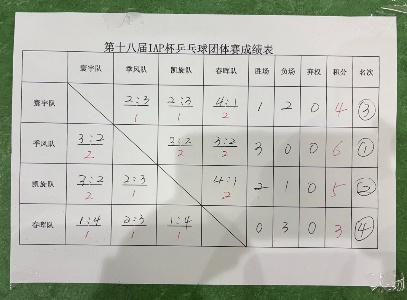 第十八届IAP杯乒乓球团体赛成绩表
寰宇队 季风队 凯旋队 春晖队 胜场 负场 弃权 积分 名次
寰宇队 2:3 2:3 4:1 1 2 0 4 ③
1 1 2
季风队 3:2 3:2 3:2 3 0 0 6 ①
2 2 2
凯旋队 3:2 2:3 4:1 2 1 0 5 ②
2 1 2
春晖队 1:4 2:3 1:4 0 3 0 3 ④
1 1 1